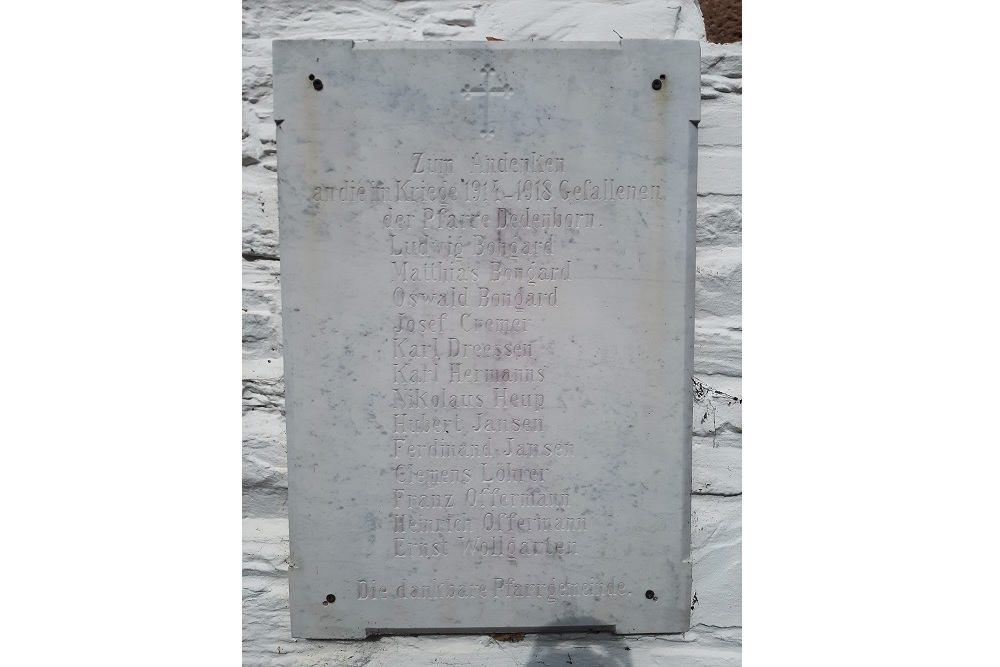 Zum Andenken
an die im Kriege 1914-1918 Gefallenen
der Pfarre Dedenborn.
Ludwig Bongard
Matthias Bongard
Oswald Bongard
Josef Cremer
Karl Dreessen
Karl Hermanns
Nikolaus Heup
Hubert Jansen
Ferdinand Jansen
Clemens Löhrer
Franz Offermann
Heinrich Offermann
Ernst Wollgarten
Die dankbare Pfarrgemeinde.